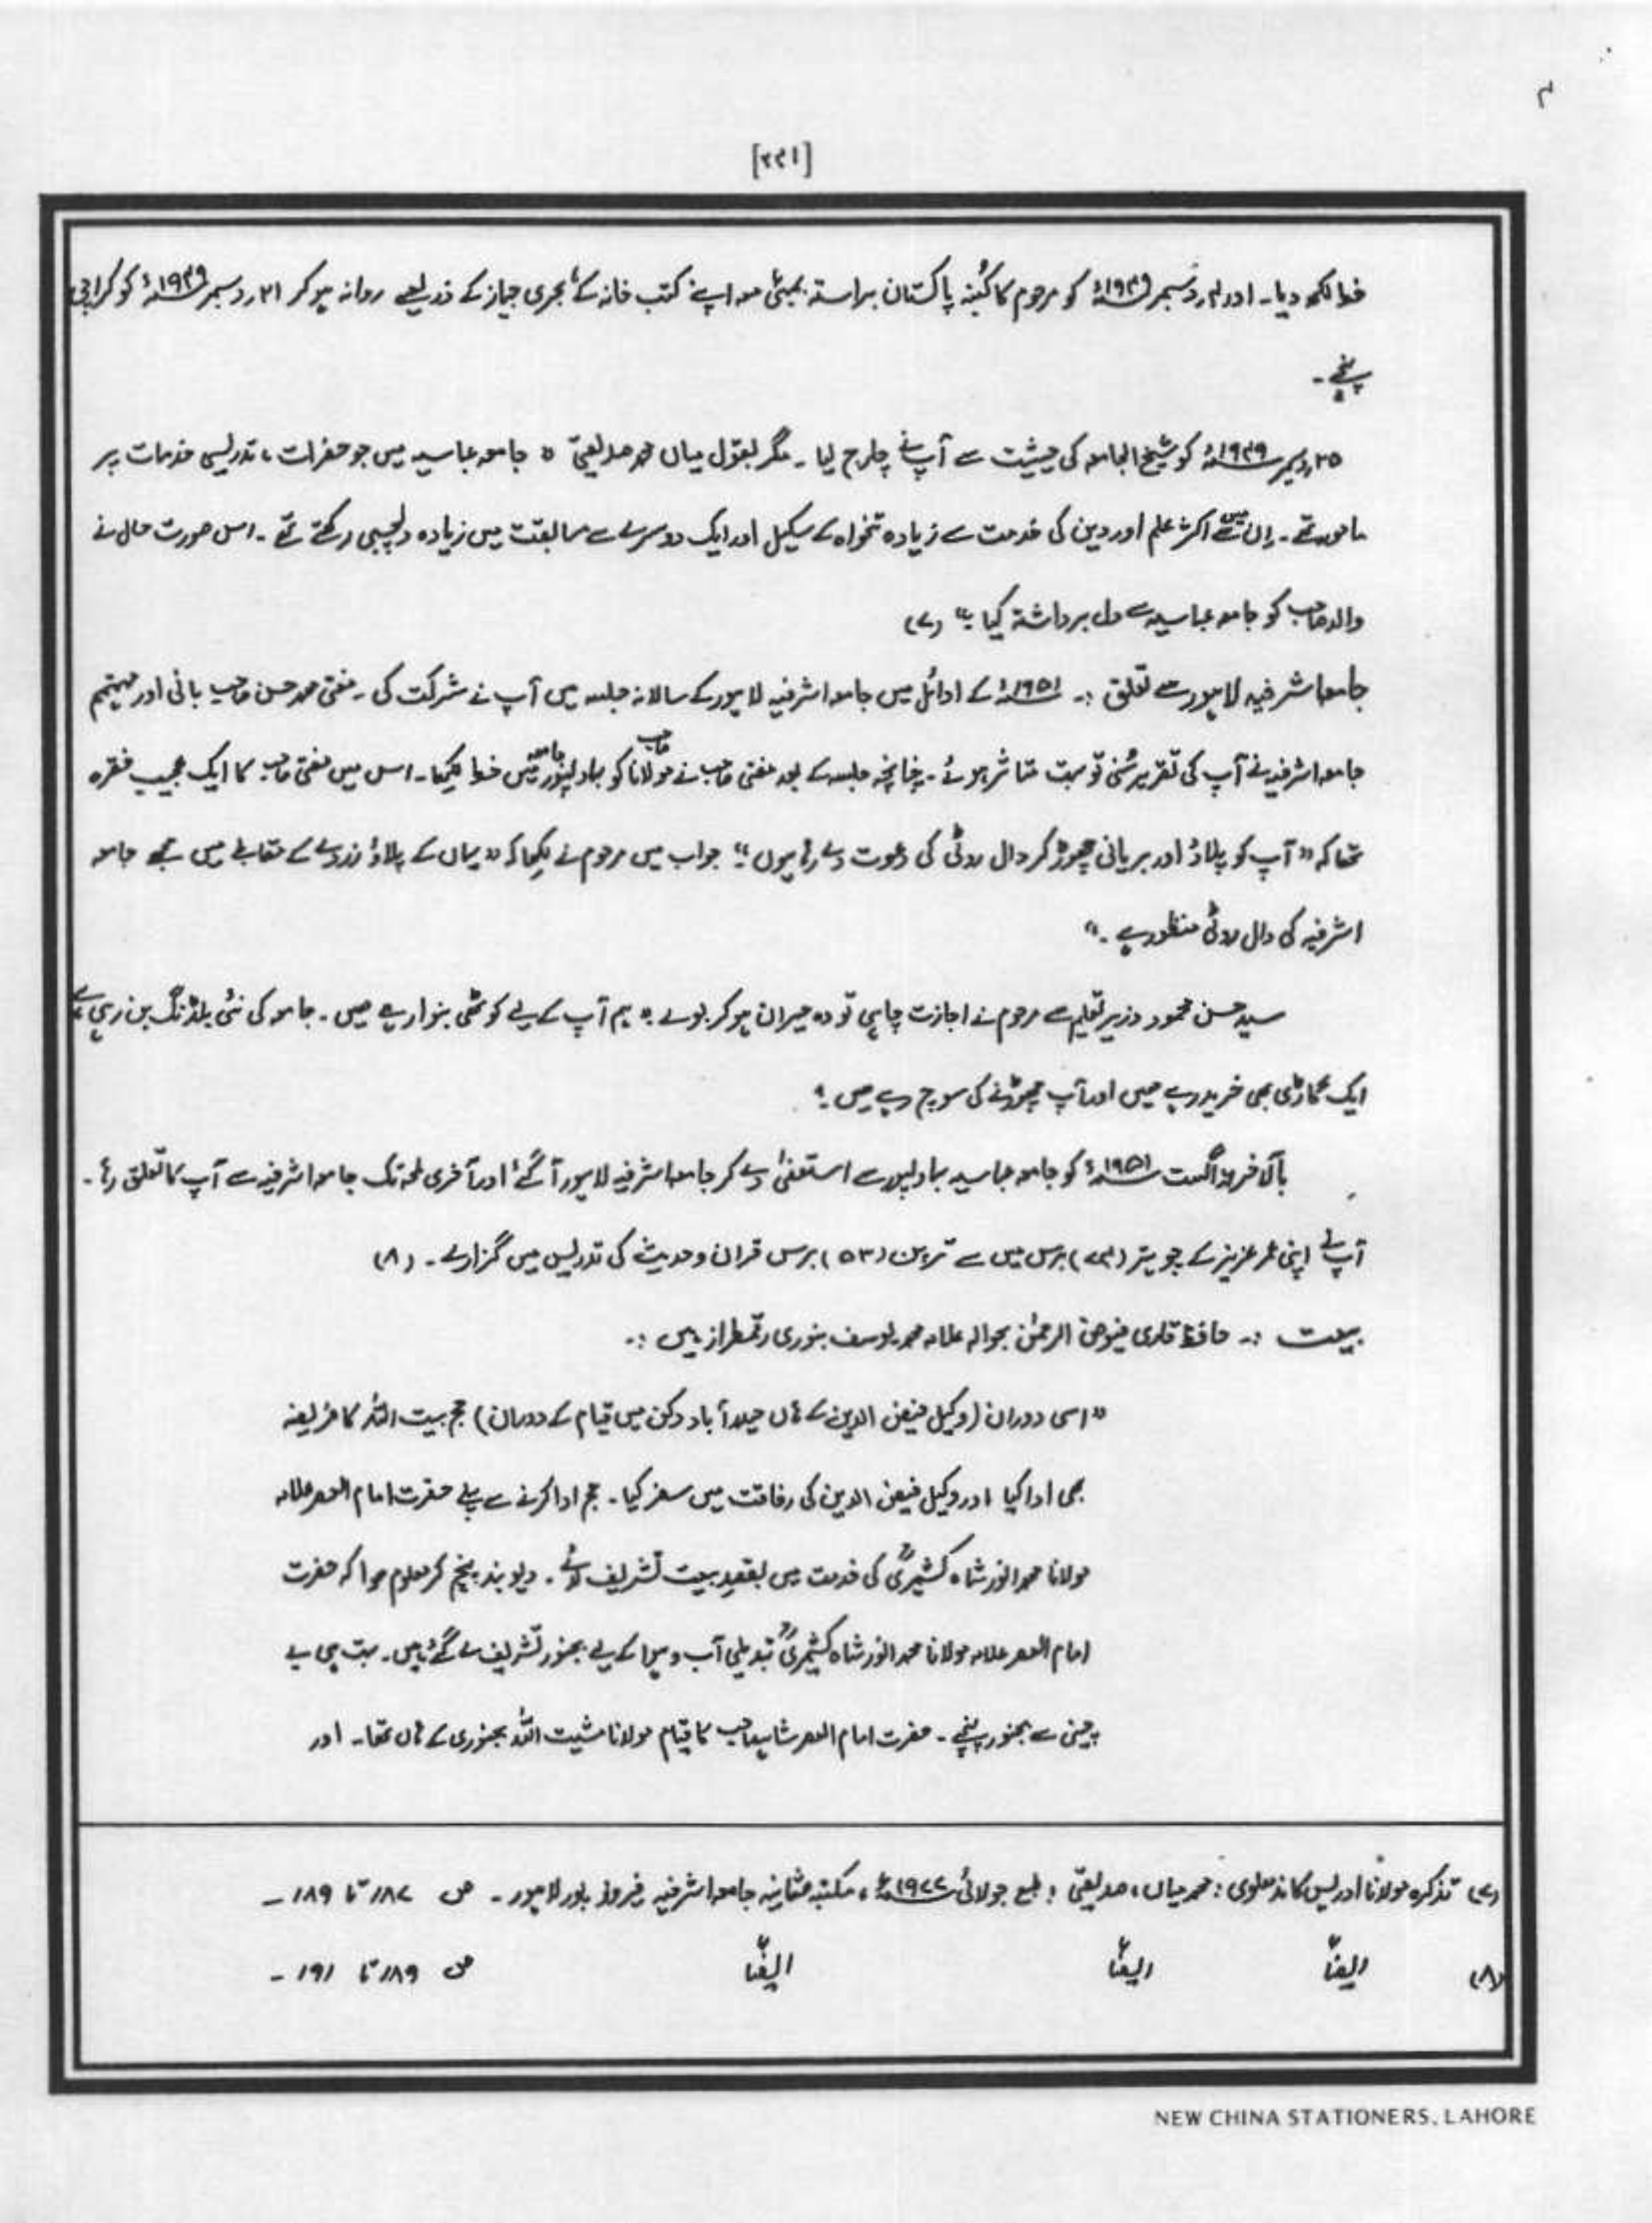 [۲۲۱]
خط لکھ دیا۔ اور ۱۲ر دسمبر ۱۹۴۹ء کو مرحوم کا کُنبہ پاکستان براستہ بمبئی معہ اپنے کتب خانہ کے بحری جہاز کے ذریعے روانہ ہو کر ۲۱ر دسمبر ۱۹۴۹ء کو کراچی
پہنچے۔
۲۵ر دسمبر ۱۹۴۹ء کو شیخ الجامعہ کی حیثیت سے آپ نے چارج لیا۔ مگر بقول میاں محمد صدیقیؒ " جامعہ عباسیہ میں جو حضرات، تدریسی خدمات پر
مامور تھے۔ اِن میں سے اکثر علم اور دین کی خدمت سے زیادہ تنخواہ کے سکیل اور ایک دوسرے سے مسابقت میں زیادہ دلچسپی رکھتے تھے۔ اس صورت حال نے
والد صاحب کو جامعہ عباسیہ سے دل برداشتہ کیا۔" (۷)
جامعہ اشرفیہ لاہور سے تعلق :۔ ۱۹۵۱ء کے اوائل میں جامعہ اشرفیہ لاہور کے سالانہ جلسہ میں آپ نے شرکت کی۔ مفتی محمد حسن صاحب بانی اور مہتمم
جامعہ اشرفیہ نے آپ کی تقریر سُنی تو بہت متاثر ہوئے۔ چنانچہ جلسہ کے بعد مفتی صاحب نے مولانا صاحب کو بہاولپور جامعہ میں خط لکھا۔ اس میں مفتی صاحب کا ایک عجیب فقرہ
تھا کہ "آپ کو پلاؤ اور بریانی چھوڑ کر دال روٹی کی دعوت دے رہا ہوں"۔ جواب میں مرحوم نے لکھا کہ "یہاں کے پلاؤ زردے کے مقابلے میں مجھے جامعہ
اشرفیہ کی دال روٹی منظور ہے۔"
سید حسن محمود وزیر تعلیم سے مرحوم نے اجازت چاہی تو وہ حیران ہو کر بولے " ہم آپ کے لیے کوٹھی بنوا رہے ہیں۔ جامعہ کی نئی بلڈنگ بن رہی ہے
ایک گاڑی بھی خرید رہے ہیں اور آپ چھوڑنے کی سوچ رہے ہیں ؟
بالآخر اگست ۱۹۵۱ء کو جامعہ عباسیہ بہاولپور سے استعفیٰ دے کر جامعہ اشرفیہ لاہور آ گئے اور آخری لمحہ تک جامعہ اشرفیہ سے آپ کا تعلق رہا۔
آپ نے اپنی عمر عزیز کے چوہتر (۷۴) برس میں سے ترپن (۵۳) برس قرآن و حدیث کی تدریس میں گزارے۔ (۸)
بیعت :۔ حافظ قاری فیوض الرحمٰن بحوالہ علامہ محمد یوسف بنوری رقمطراز ہیں :۔
"اسی دوران (وکیل فیض الدین کے ہاں حیدر آباد دکن میں قیام کے دوران) حج بیت اللہ کا فریضہ
بھی ادا کیا اور وکیل فیض الدین کی رفاقت میں سفر کیا۔ حج ادا کرنے سے پہلے حضرت امام العصر علامہ
مولانا محمد انور شاہ کشمیریؒ کی خدمت میں بقصدِ بیعت تشریف لائے۔ دیوبند پہنچ کر معلوم ہوا کہ حضرت
امام العصر علامہ مولانا محمد انور شاہ کشمیریؒ تبدیلی آب و ہوا کے لیے بجنور تشریف لے گئے ہیں۔ بہت ہی بے
چینی سے بجنور پہنچے۔ حضرت امام العصر شاہ صاحب کا قیام مولانا مشیت اللہ بجنوری کے ہاں تھا۔ اور
(۷) تذکرہ مولانا ادریس کاندھلوی : محمد میاں، صدیقی ؛ طبع جولائی ۱۹۷۷ء، مکتبہ عثمانیہ جامعہ اشرفیہ فیروز پور لاہور۔ ص ۱۸۷ تا ۱۸۹ ۔
(۸) ایضاً ایضاً ایضاً ص ۱۸۹ تا ۱۹۱ ۔
NEW CHINA STATIONERS, LAHORE